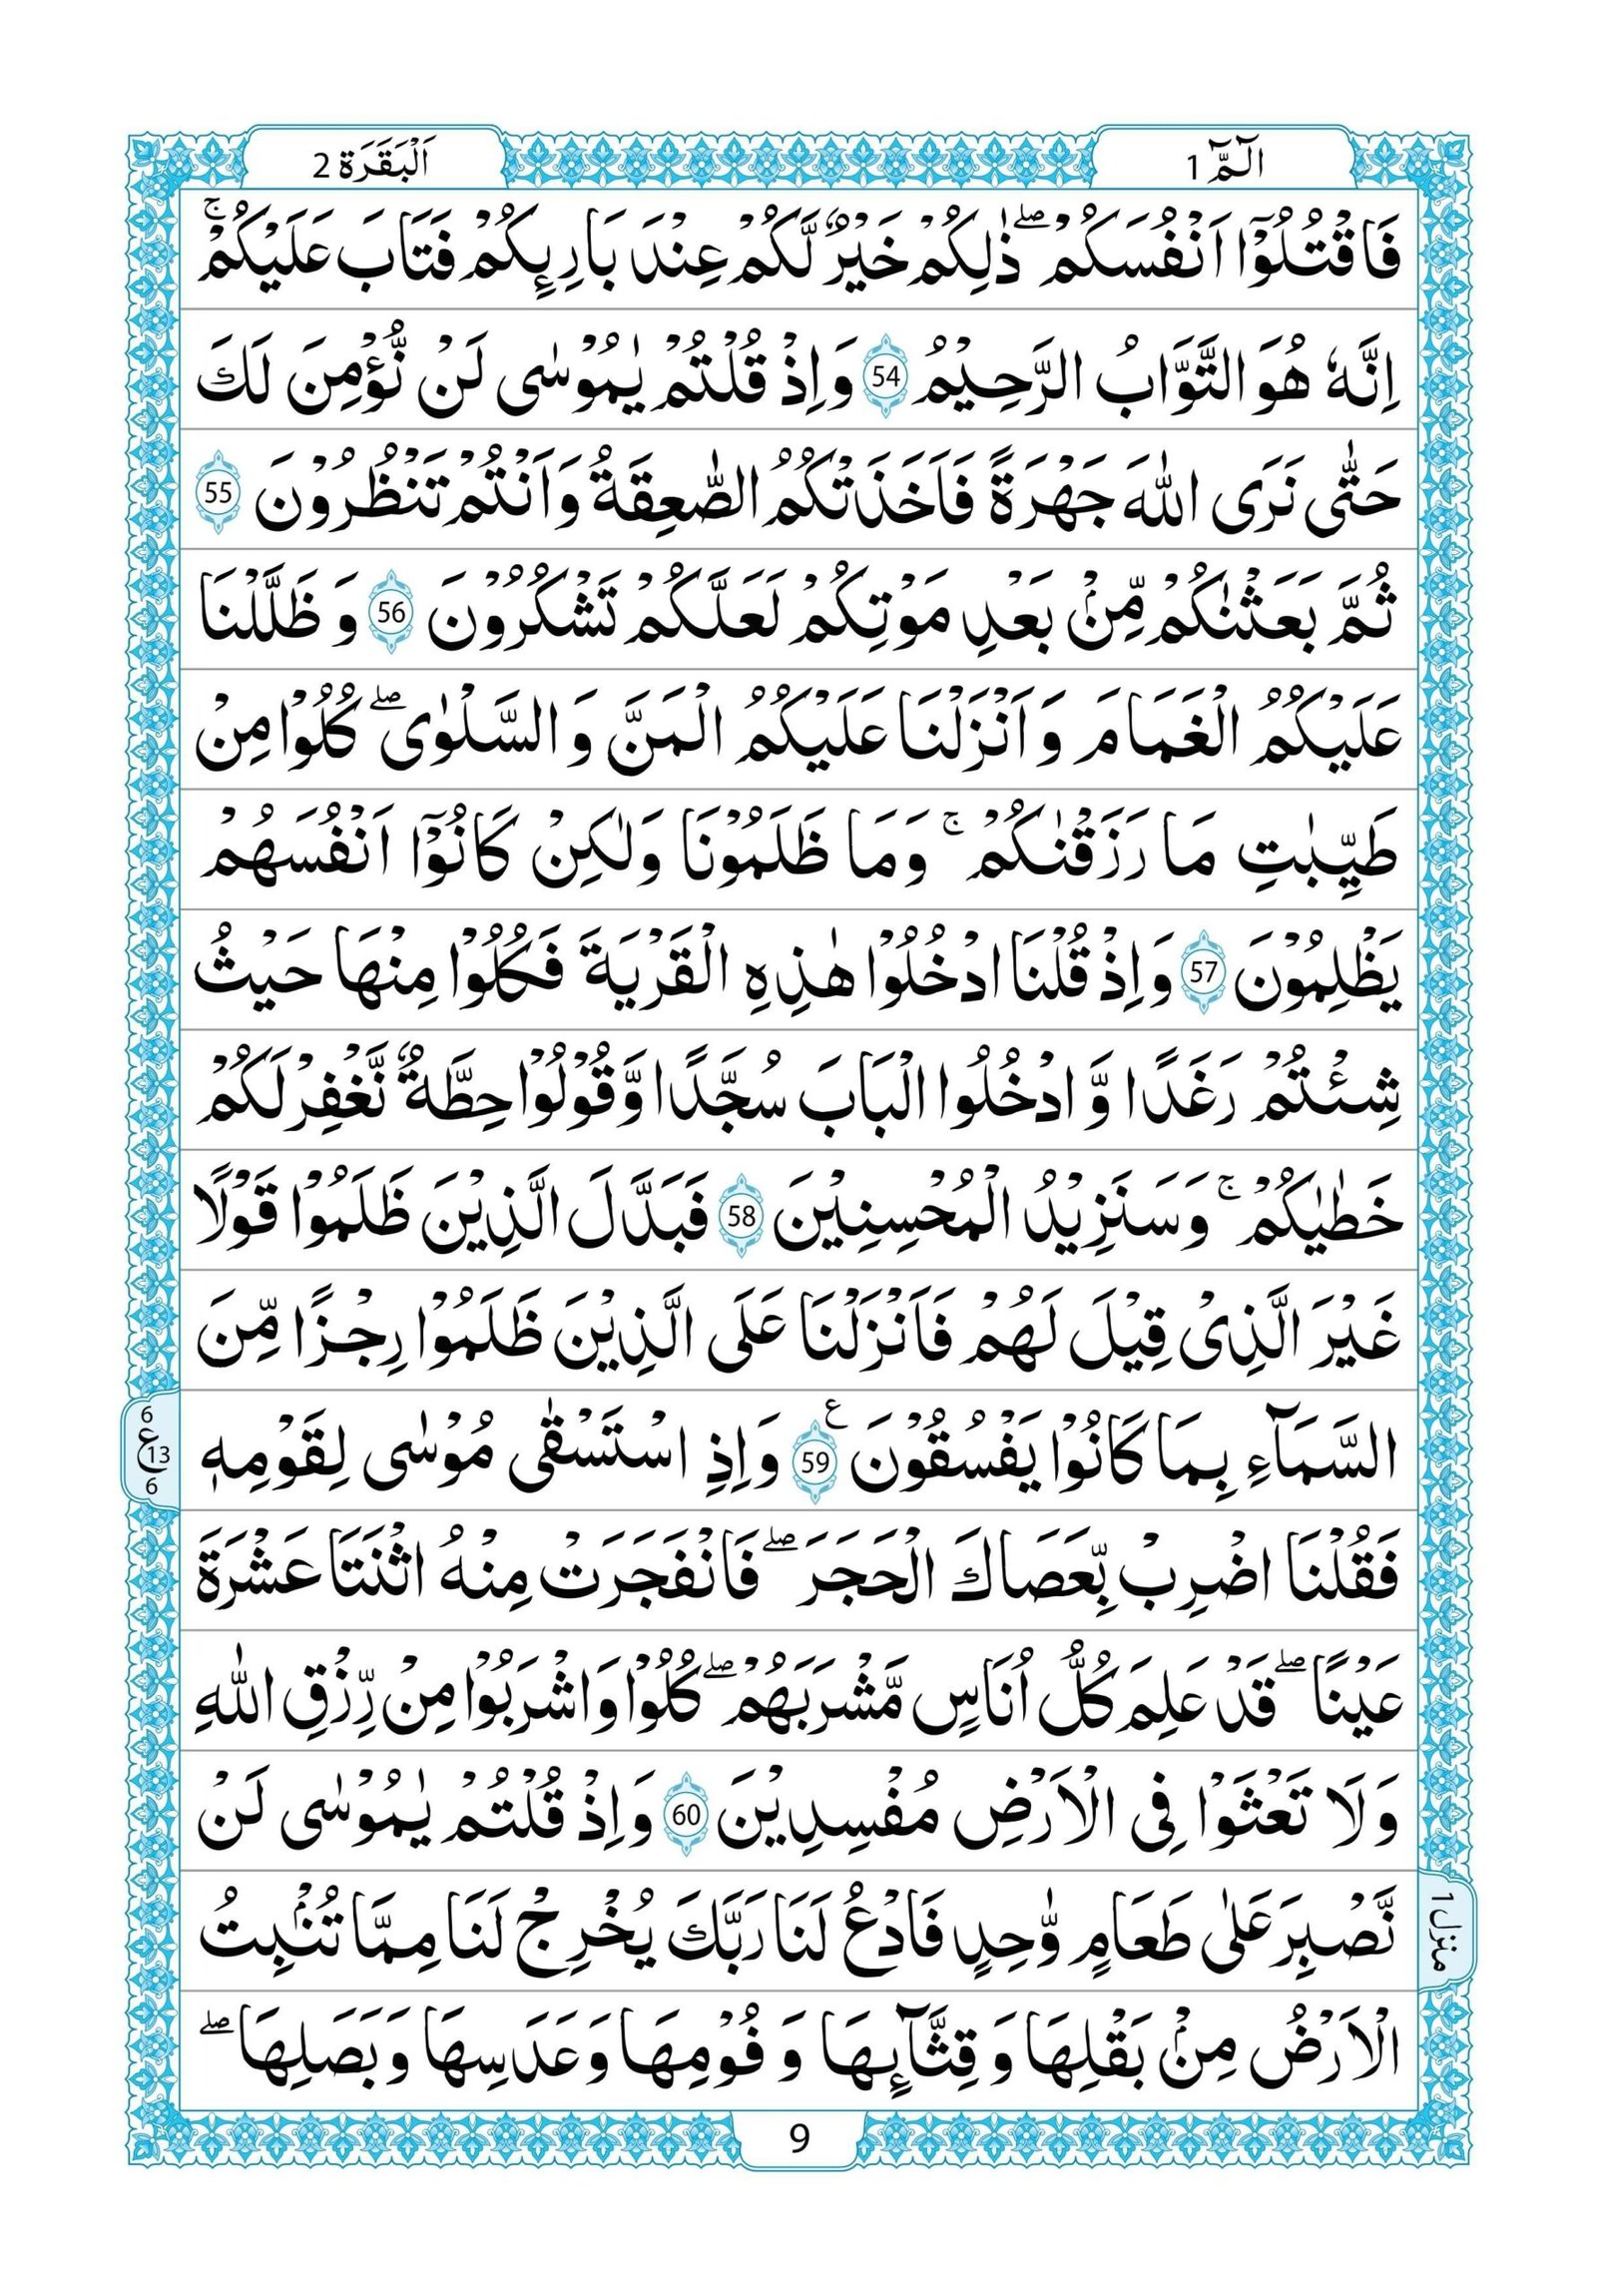 الٓـمّٓ 1
اَلْبَقَرَة 2
فَاقْتُلُوْۤا اَنْفُسَكُمْ ؕۖ ذٰلِكُمْ خَيْرٌ لَّكُمْ عِنْدَ بَارِىِٕكُمْ فَتَابَ عَلَيْكُمْ ۚ
اِنَّهٗ هُوَ التَّوَّابُ الرَّحِيْمُ 54 وَ اِذْ قُلْتُمْ يٰمُوْسٰى لَنْ نُّؤْمِنَ لَكَ
حَتّٰى نَرَى اللّٰهَ جَهْرَةً فَاَخَذَتْكُمُ الصّٰعِقَةُ وَ اَنْتُمْ تَنْظُرُوْنَ 55
ثُمَّ بَعَثْنٰكُمْ مِّنْۢ بَعْدِ مَوْتِكُمْ لَعَلَّكُمْ تَشْكُرُوْنَ 56 وَ ظَلَّلْنَا
عَلَيْكُمُ الْغَمَامَ وَ اَنْزَلْنَا عَلَيْكُمُ الْمَنَّ وَ السَّلْوٰى ۖ كُلُوْا مِنْ
طَيِّبٰتِ مَا رَزَقْنٰكُمْ ۚ وَمَا ظَلَمُوْنَا وَلٰكِنْ كَانُوْۤا اَنْفُسَهُمْ
يَظْلِمُوْنَ 57 وَ اِذْ قُلْنَا ادْخُلُوْا هٰذِهِ الْقَرْيَةَ فَكُلُوْا مِنْهَا حَيْثُ
شِئْتُمْ رَغَدًا وَّ ادْخُلُوا الْبَابَ سُجَّدًا وَّ قُوْلُوْا حِطَّةٌ نَّغْفِرْ لَكُمْ
خَطٰيٰكُمْ ۚ وَ سَنَزِيْدُ الْمُحْسِنِيْنَ 58 فَبَدَّلَ الَّذِيْنَ ظَلَمُوْا قَوْلًا
غَيْرَ الَّذِىْ قِيْلَ لَهُمْ فَاَنْزَلْنَا عَلَى الَّذِيْنَ ظَلَمُوْا رِجْزًا مِّنَ
السَّمَآءِ بِمَا كَانُوْا يَفْسُقُوْنَ ع 59 وَ اِذِ اسْتَسْقٰى مُوْسٰى لِقَوْمِهٖ
6 ع 13 6
فَقُلْنَا اضْرِبْ بِّعَصَاكَ الْحَجَرَ ۖ فَانْفَجَرَتْ مِنْهُ اثْنَتَا عَشْرَةَ
عَيْنًا ۖ قَدْ عَلِمَ كُلُّ اُنَاسٍ مَّشْرَبَهُمْ ۖ كُلُوْا وَ اشْرَبُوْا مِنْ رِّزْقِ اللّٰهِ
وَلَا تَعْثَوْا فِى الْاَرْضِ مُفْسِدِيْنَ 60 وَ اِذْ قُلْتُمْ يٰمُوْسٰى لَنْ
نَّصْبِرَ عَلٰى طَعَامٍ وّٰحِدٍ فَادْعُ لَنَا رَبَّكَ يُخْرِجْ لَنَا مِمَّا تُنْۢبِتُ
منزل 1
الْاَرْضُ مِنْۢ بَقْلِهَا وَ قِثَّآىِٕهَا وَ فُوْمِهَا وَ عَدَسِهَا وَ بَصَلِهَا ۖ
9